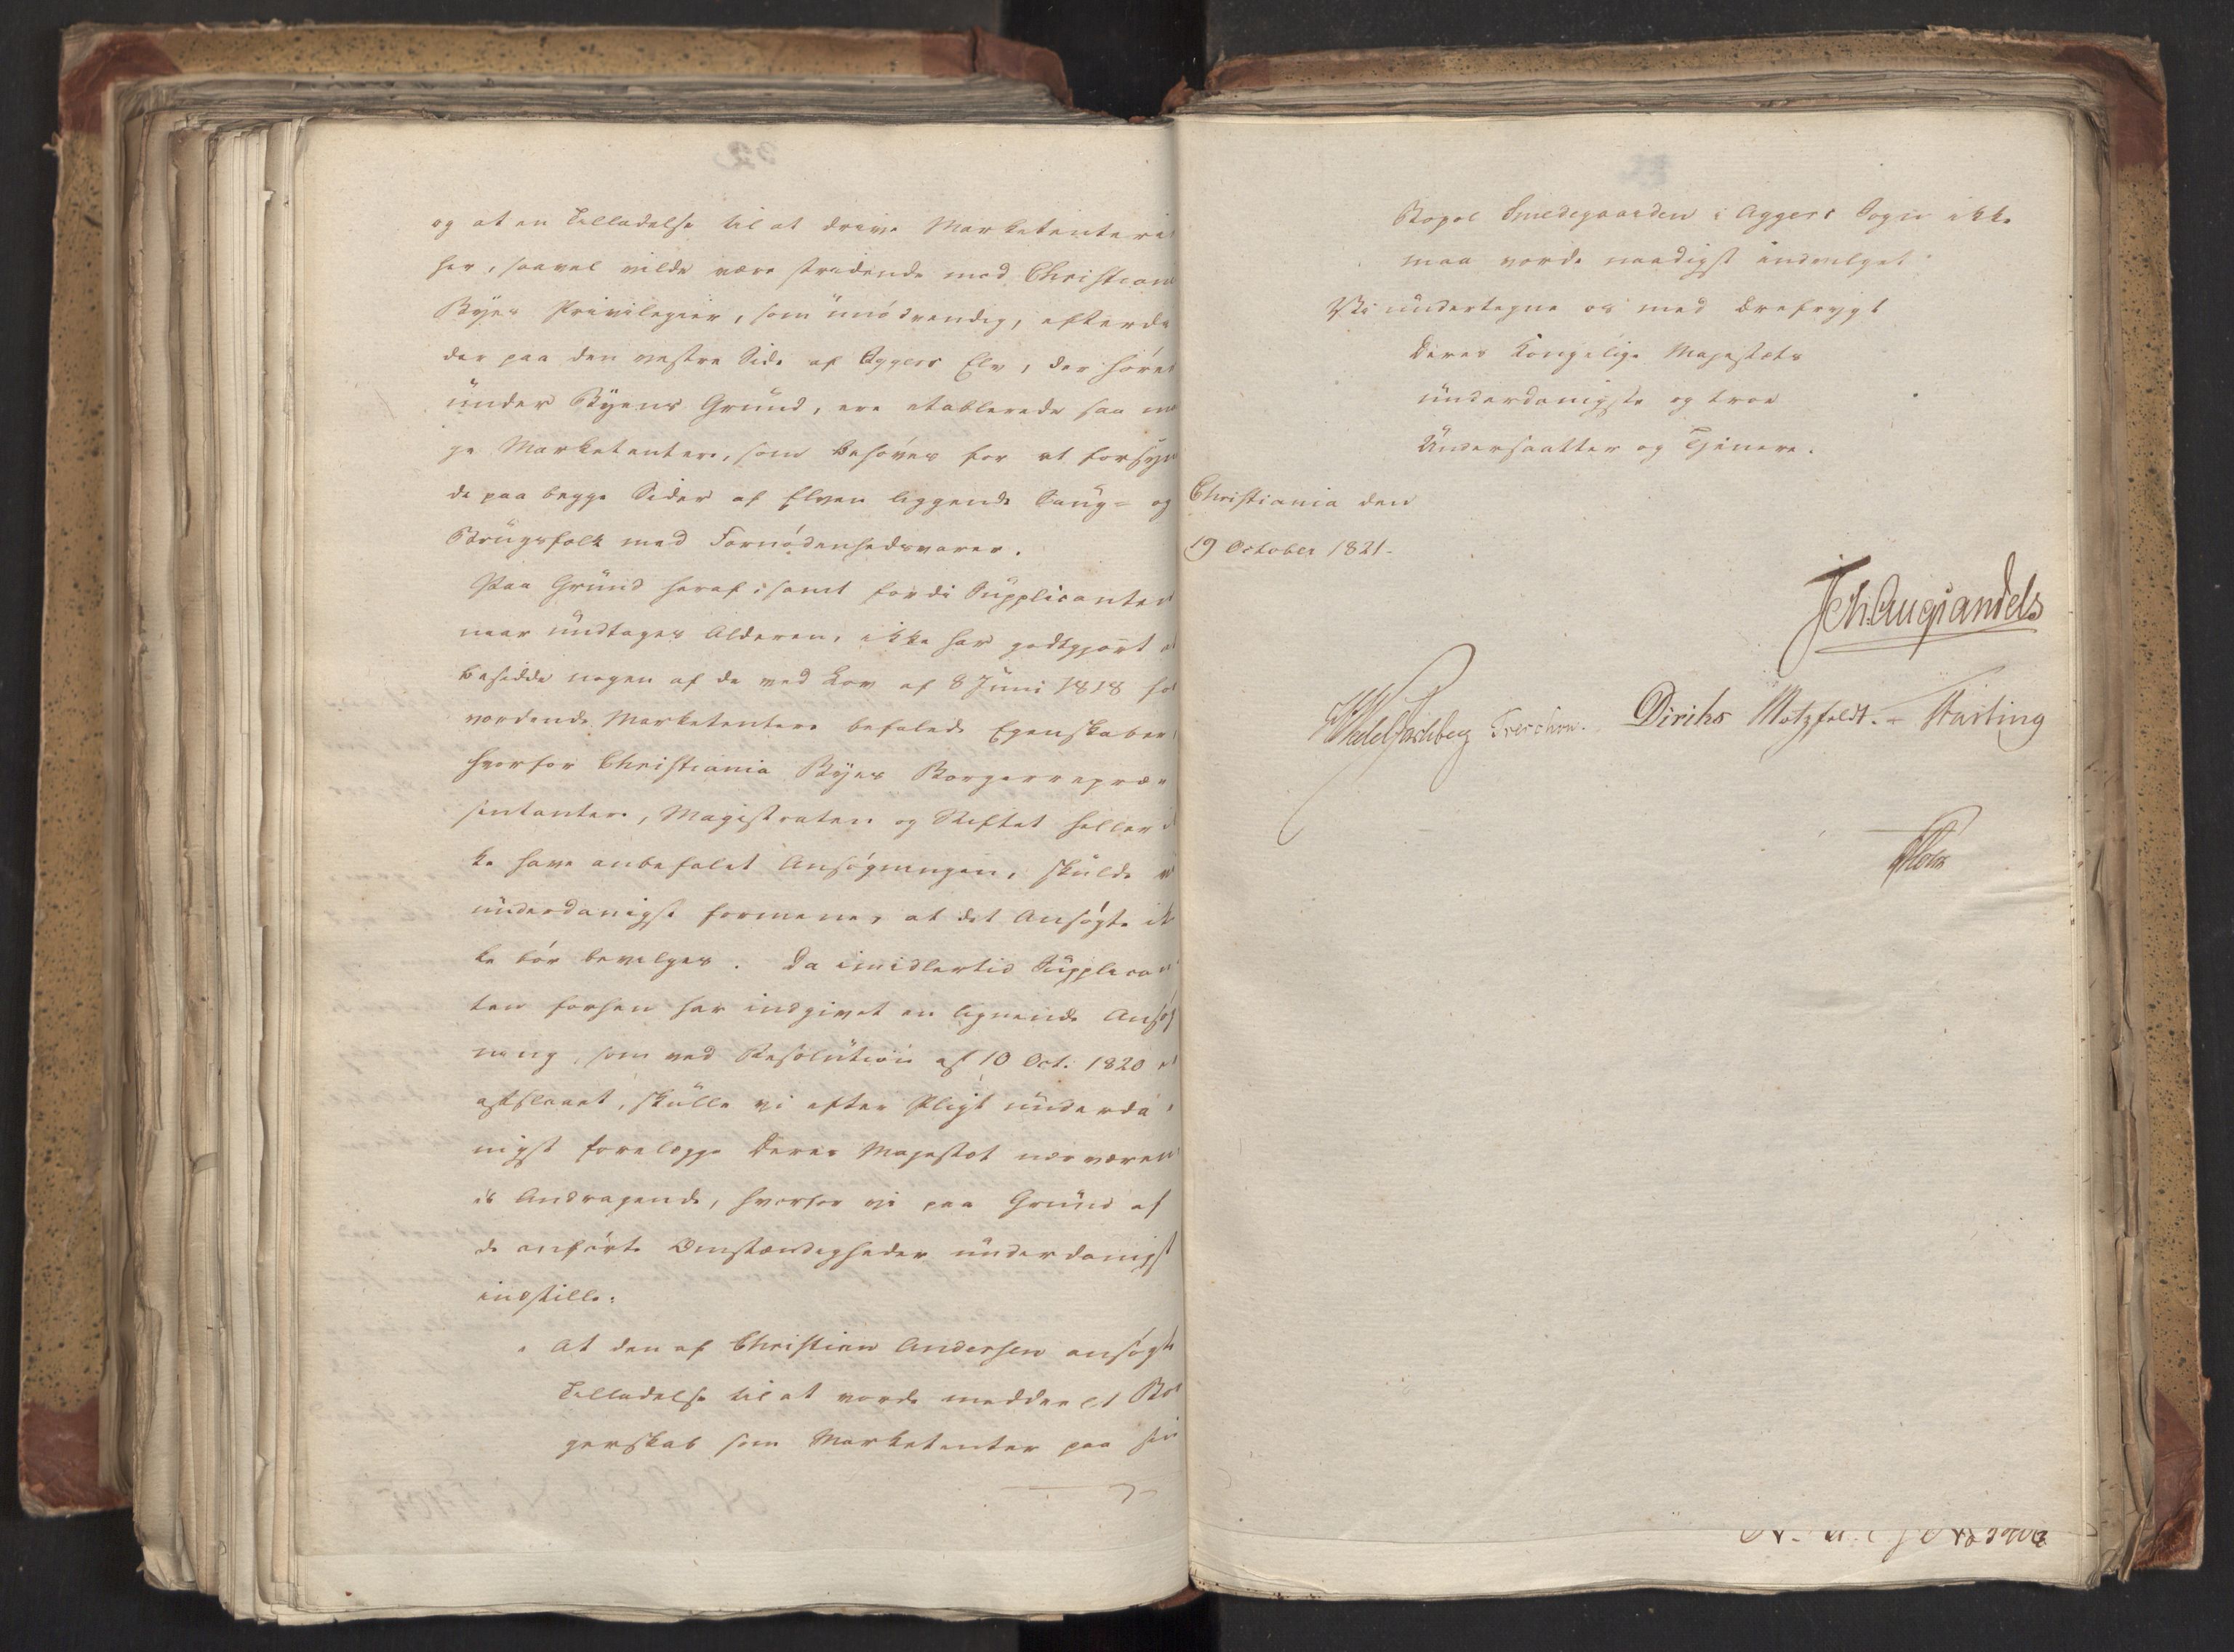 og at en Tilladelse til at drive Marketenteri
her, saavel vilde være stridende mod Christiania
Byes Privilegier, som unödvendig, efterda
der paa den vestre Side af Aggers Elv, der hörer
under Byens Grund, ere etablerede saa man
ge Marketentere, som behöves for at forsyne
de paa begge Sider af Elven liggende Saug- og
Brugsfolk med Fornödenhedsvarer.
Paa Grund heraf, samt fordi Supplicanten
naar undtages Alderen, ikke har godtgjort at
besidde nogen af de ved Lov af 8 Juni 1818 for
vordende Marketentere befalede Egenskaber,
hvorfor Christiania Byes Borgerrepræ-
sentantere, Magistraten og Stiftet heller ik
ke have anbefalet Ansögningen, skulde vi
underdanigst formene, at det Ansögte ik
ke bör bevilges. Da imidlertid Supplican
ten forhen har indgivet en lignende Ansög
ning, som ved Resolution af 10 Oct. 1820 er
afslaaet, skulle vi efter Pligt underda
nigst forelægge Deres Majestæt nærværen
de Andragende, hvorfor vi paa Grund af
de anförte Omstændigheder underdanigst
indstille:
At den af Christian Andersen ansögte
Tilladelse til at vorde meddeelt Bor
gerskab som Marketenter paa sin
Bopæl Smedegaarden i Aggers Sogn ikke
maa vorde naadigst indvilget.
Vi undertegne os med Ærefrygt
Deres Kongelige Majestæts
underdanigste og troe
Undersaatter og Tjenere.
Christiania den
19 October 1821.
Joh. Aug. Sandels
Wedel Jarlsberg Treschow. Diriks Motzfeldt. Fasting
Holst